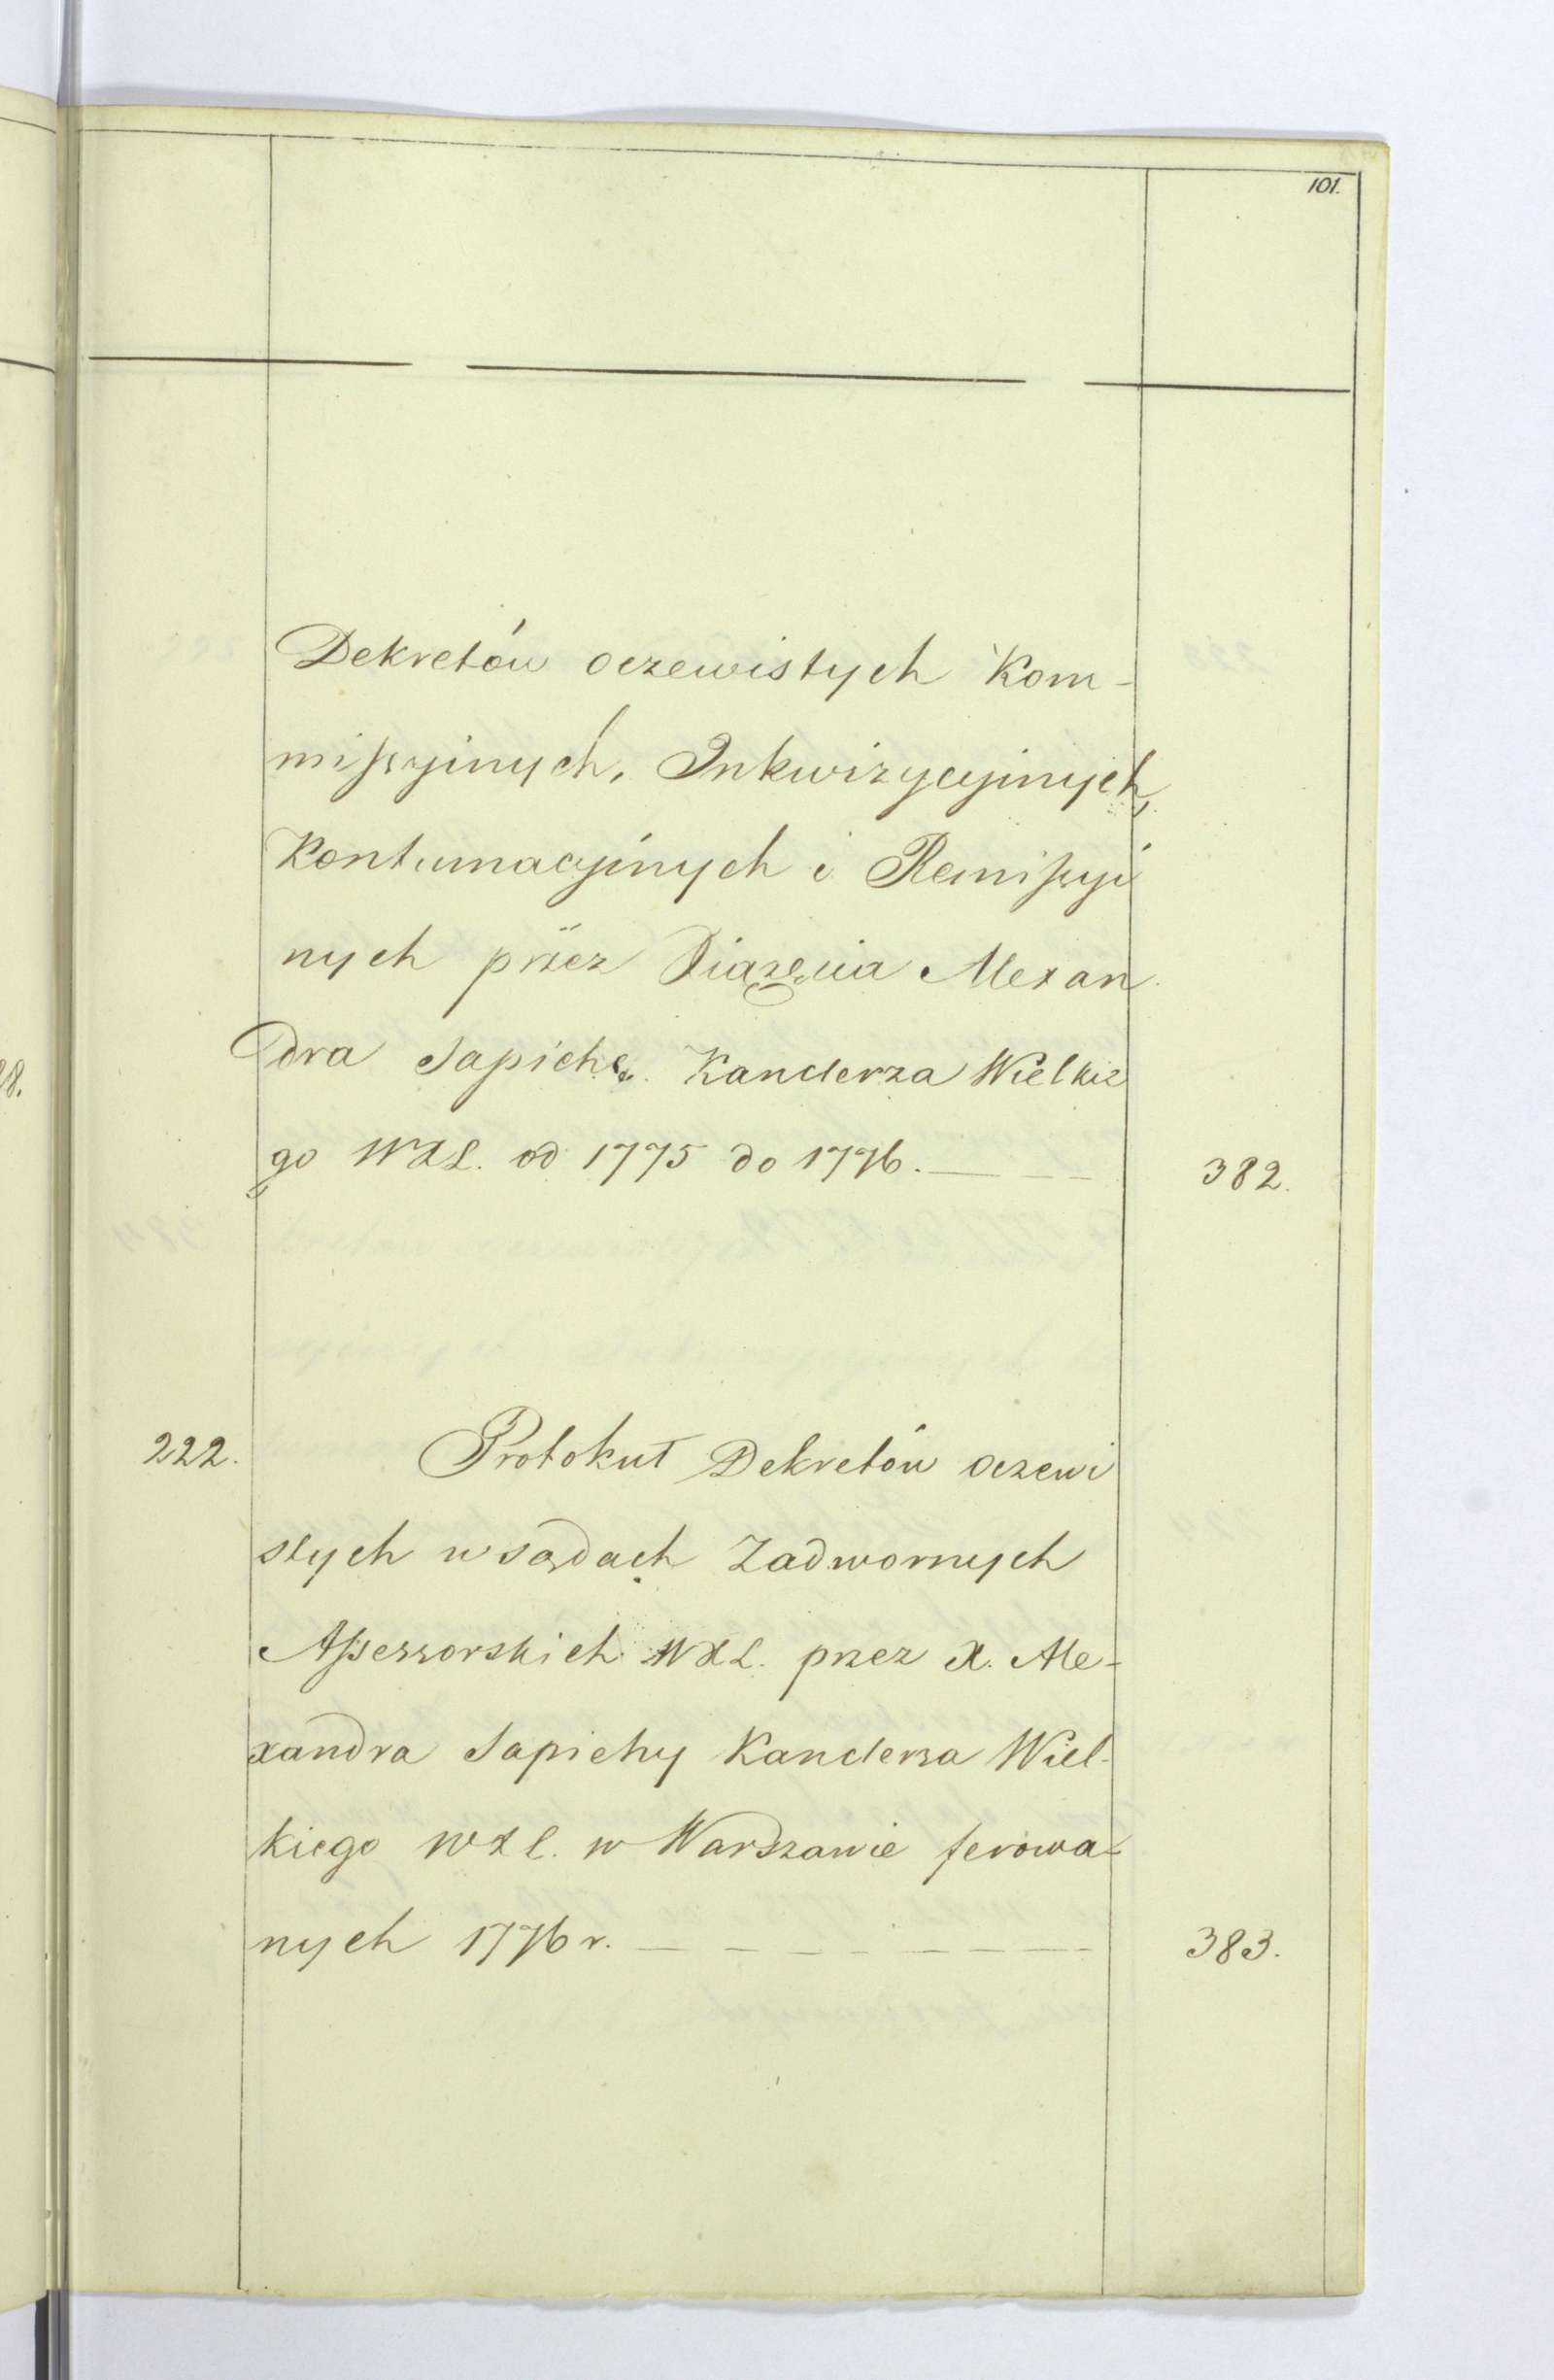 101.
Dekretów oczewistych Kom-
missyinych, Inkwizycyinych,
Kontumacyinych i Remissyi
nych przez Xiążęcia Alexan
dra Sapiehę Kanclerza Wielkie
go WXL. od 1775 do 1776.
382.
222.
Protokuł Dekretów oczewi
stych w sądach Zadwornych
Assessorskich WXL. przez X. Ale-
xandra Sapiehy Kanclerza Wiel-
kiego WXL. w Warszawie ferowa-
nych 1776 r.
383.